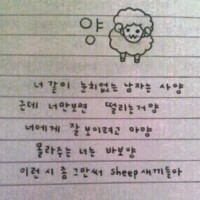 양
너 같이 눈치없는 남자는 사양
근데 너만보면 떨리는거양
너에게 잘 보이려고 아양
몰라주는 너는 바보양
이런 시 좀 그만써 sheep새끼들아